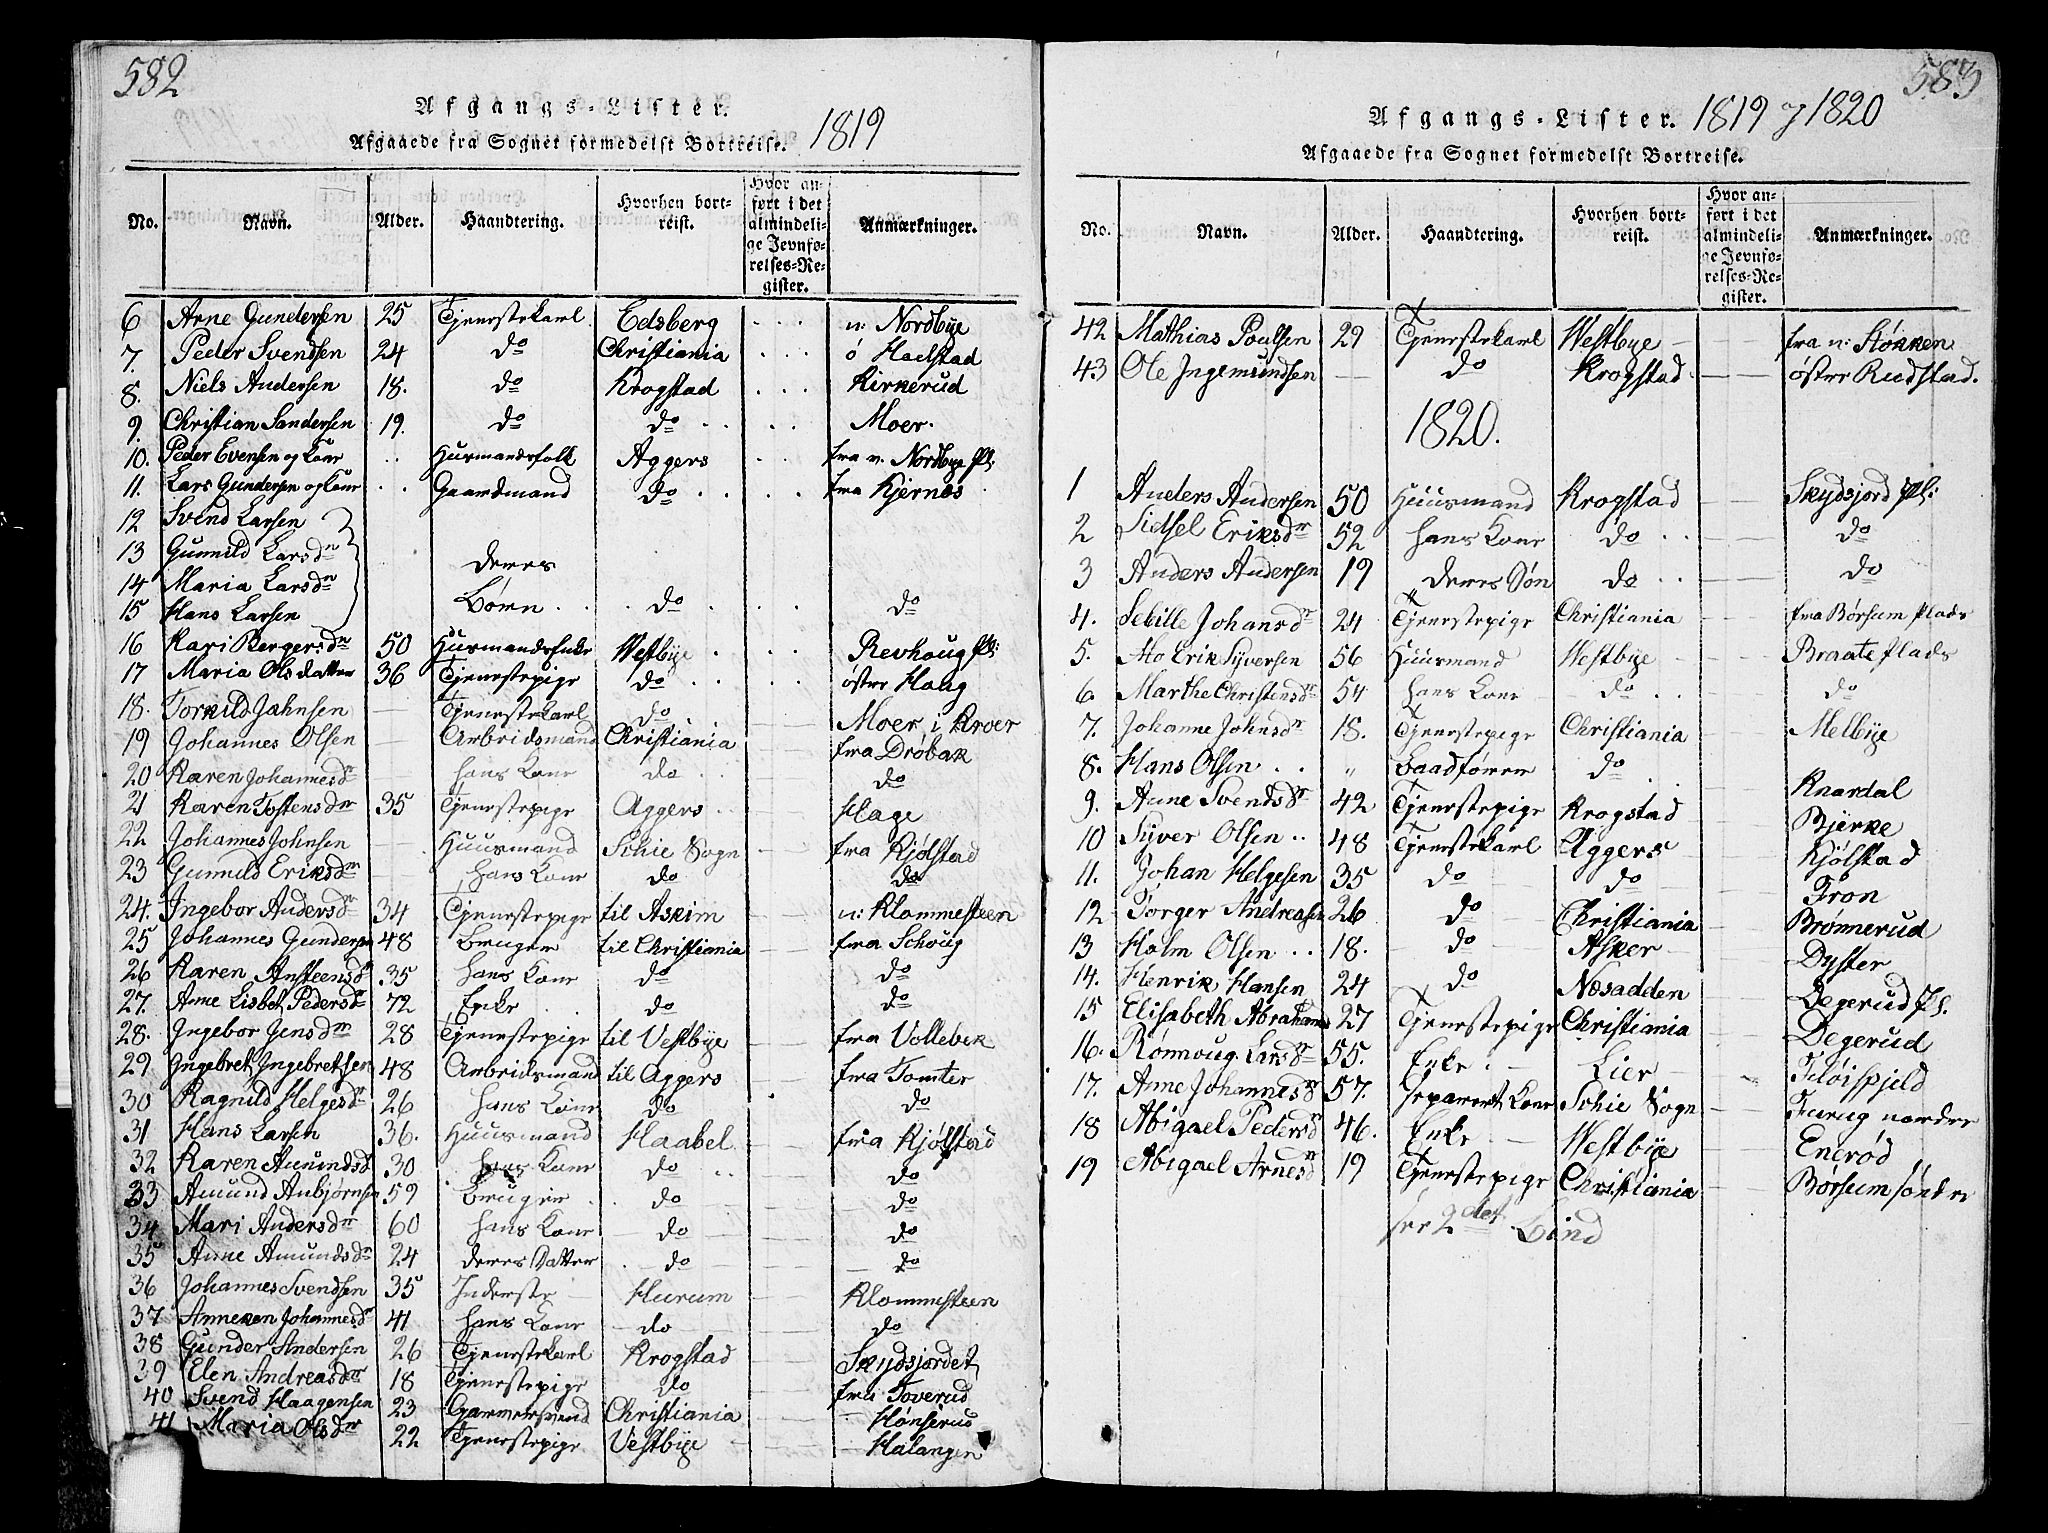 582
Afgangs-Lister.
Afgaaede fra Sognet formedelst Bortreise. 1819
No. Navn. Alder. Haandtering. Hvorhen bortreist. Hvor anført i det almindelige Jevnførelses-Register. Anmærkninger.
6 Arne Gundersen 25 Tjenestekarl Edsberg n: Nordbye
7. Peder Svendsen 24 do Christiania ö Haelstad
8. Niels Andersen 18. do Krogstad Kirkerud
9. Christian Sandersen 19. do do Moer.
10. Peder Evensen og Kone Husmandsfolk Aggers fra n. Nordbye Pl:
11. Lars Gundersen og Kone Gaardmand do fra Kjernes
12 Svend Larsen
13 Gunnild Larsdr
14 Maria Larsdr deres
15 Hans Larsen Børn do do
16 Kari Bergersdr 50 Husmandsenke Westbye Revhoug Pl:
17 Maria Olsdatter 36 Tjenestepige do østre Haug
18. Torkild Jahnsen Tjenestekarl do Moer i Kroer
19 Johannes Olsen Arbeidsmand Christiania fra Drøbak
20 Karen Johannesdr hans Kone do do
21 Karen Tostensdr 35 Tjenestepige Aggers Hage
22 Johannes Johnsen Huusmand Schie Sogn fra Kjølstad
23 Gunnild Eriksdr hans Kone do do
24. Ingebor Andersdr 34 Tjenestepige til Askim n: Klommesteen
25 Johannes Gundersen 48 Bruger til Christiania fra Schoug
26 Karen Ansteensdr 35 hans Kone do do
27. Anne Lisbet Pedersdr 72 Enke do do
28. Ingebor Jensdr 28 Tjenestepige til Vestbye fra Vollebek
29 Ingebret Ingebretsen 48 Arbeidsmand til Aggers fra Tomter
30 Ragnild Helgesdr 26 hans Kone do do
31 Hans Larsen 36. Huusmand Haabel fra Kjølstad
32 Karen Amundsdr 30 hans Kone do do
33 Amund Anbjørnsen 59 Bruger do do
34 Mari Andersdr 60 hans Kone do do
35 Anne Amundsdr 24 deres Datter do do
36 Johannes Svendsen 35 Inderste Hurum Klommesteen
37 Anneken Johannesdr 41 hans Kone do do
38 Gunder Andersen 26 Tjenestekarl Krogstad Skydsjordet
39 Elen Andreasdr 18 Tjenestepige do fra Toverud
40 Svend Haagensen 23 Garversvend Christiania Hønserud
41 Maria Olsdr 22 Tjenestepige Vestbye Halangen
583
Afgangs-Lister. 1819 og 1820
Afgaaede fra Sognet formedelst Bortreise.
No. Navn. Alder. Haandtering. Hvorhen bortreist. Hvor anført i det almindelige Jevnførelses-Register. Anmærkninger.
42 Mathias Poulsen 29 Tjenestekarl Westbye fra n: Støkken
43 Ole Ingemundsen do Krogstad østre Rudstad.
1820.
1 Anders Andersen 50 Huusmand Krogstad Skydsjord Pl:
2 Sidsel Eriksdr 52 hans Kone do do
3 Anders Andersen 19 deres Søn do do
4. Sebille Johansdr 24 Tjenestepige Christiania fra Børsum Plads
5. Mo Erik Syversen 56 Huusmand Westbye Braate Plads
6. Marthe Christensdr 54 hans Kone do do
7. Johanne Johnsdr 18. Tjenestepige Christiania Melbye
8. Hans Olsen " Baadfører do Knardal
9. Anne Svendsdr 42 Tjenestepige Krogstad Bjerke
10 Syver Olsen 48 Tjenestekarl Aggers Kjølstad
11. Johan Helgesen 35 do do Fron
12 Torger Andreasen 26 do Christiania Brønnerud
13 Holm Olsen 18. do Asker Dyster
14. Henrik Hansen 24 do Nesadden Degerud Pl.
15 Elisabeth Abrahams 27 Tjenestepige Christiania Degerud
16. Rønnoug Larsdr 55. Enke Lier Fløispjeld
17. Anne Johannesdr 57. separert Kone Schie Sogn Furug nordre
18 Abigael Pedersdr 46. Enke Westbye Enerød
19 Abigael Arnesdr 19 Tjenestepige Christiania Børsum søndre
see 2det Bind